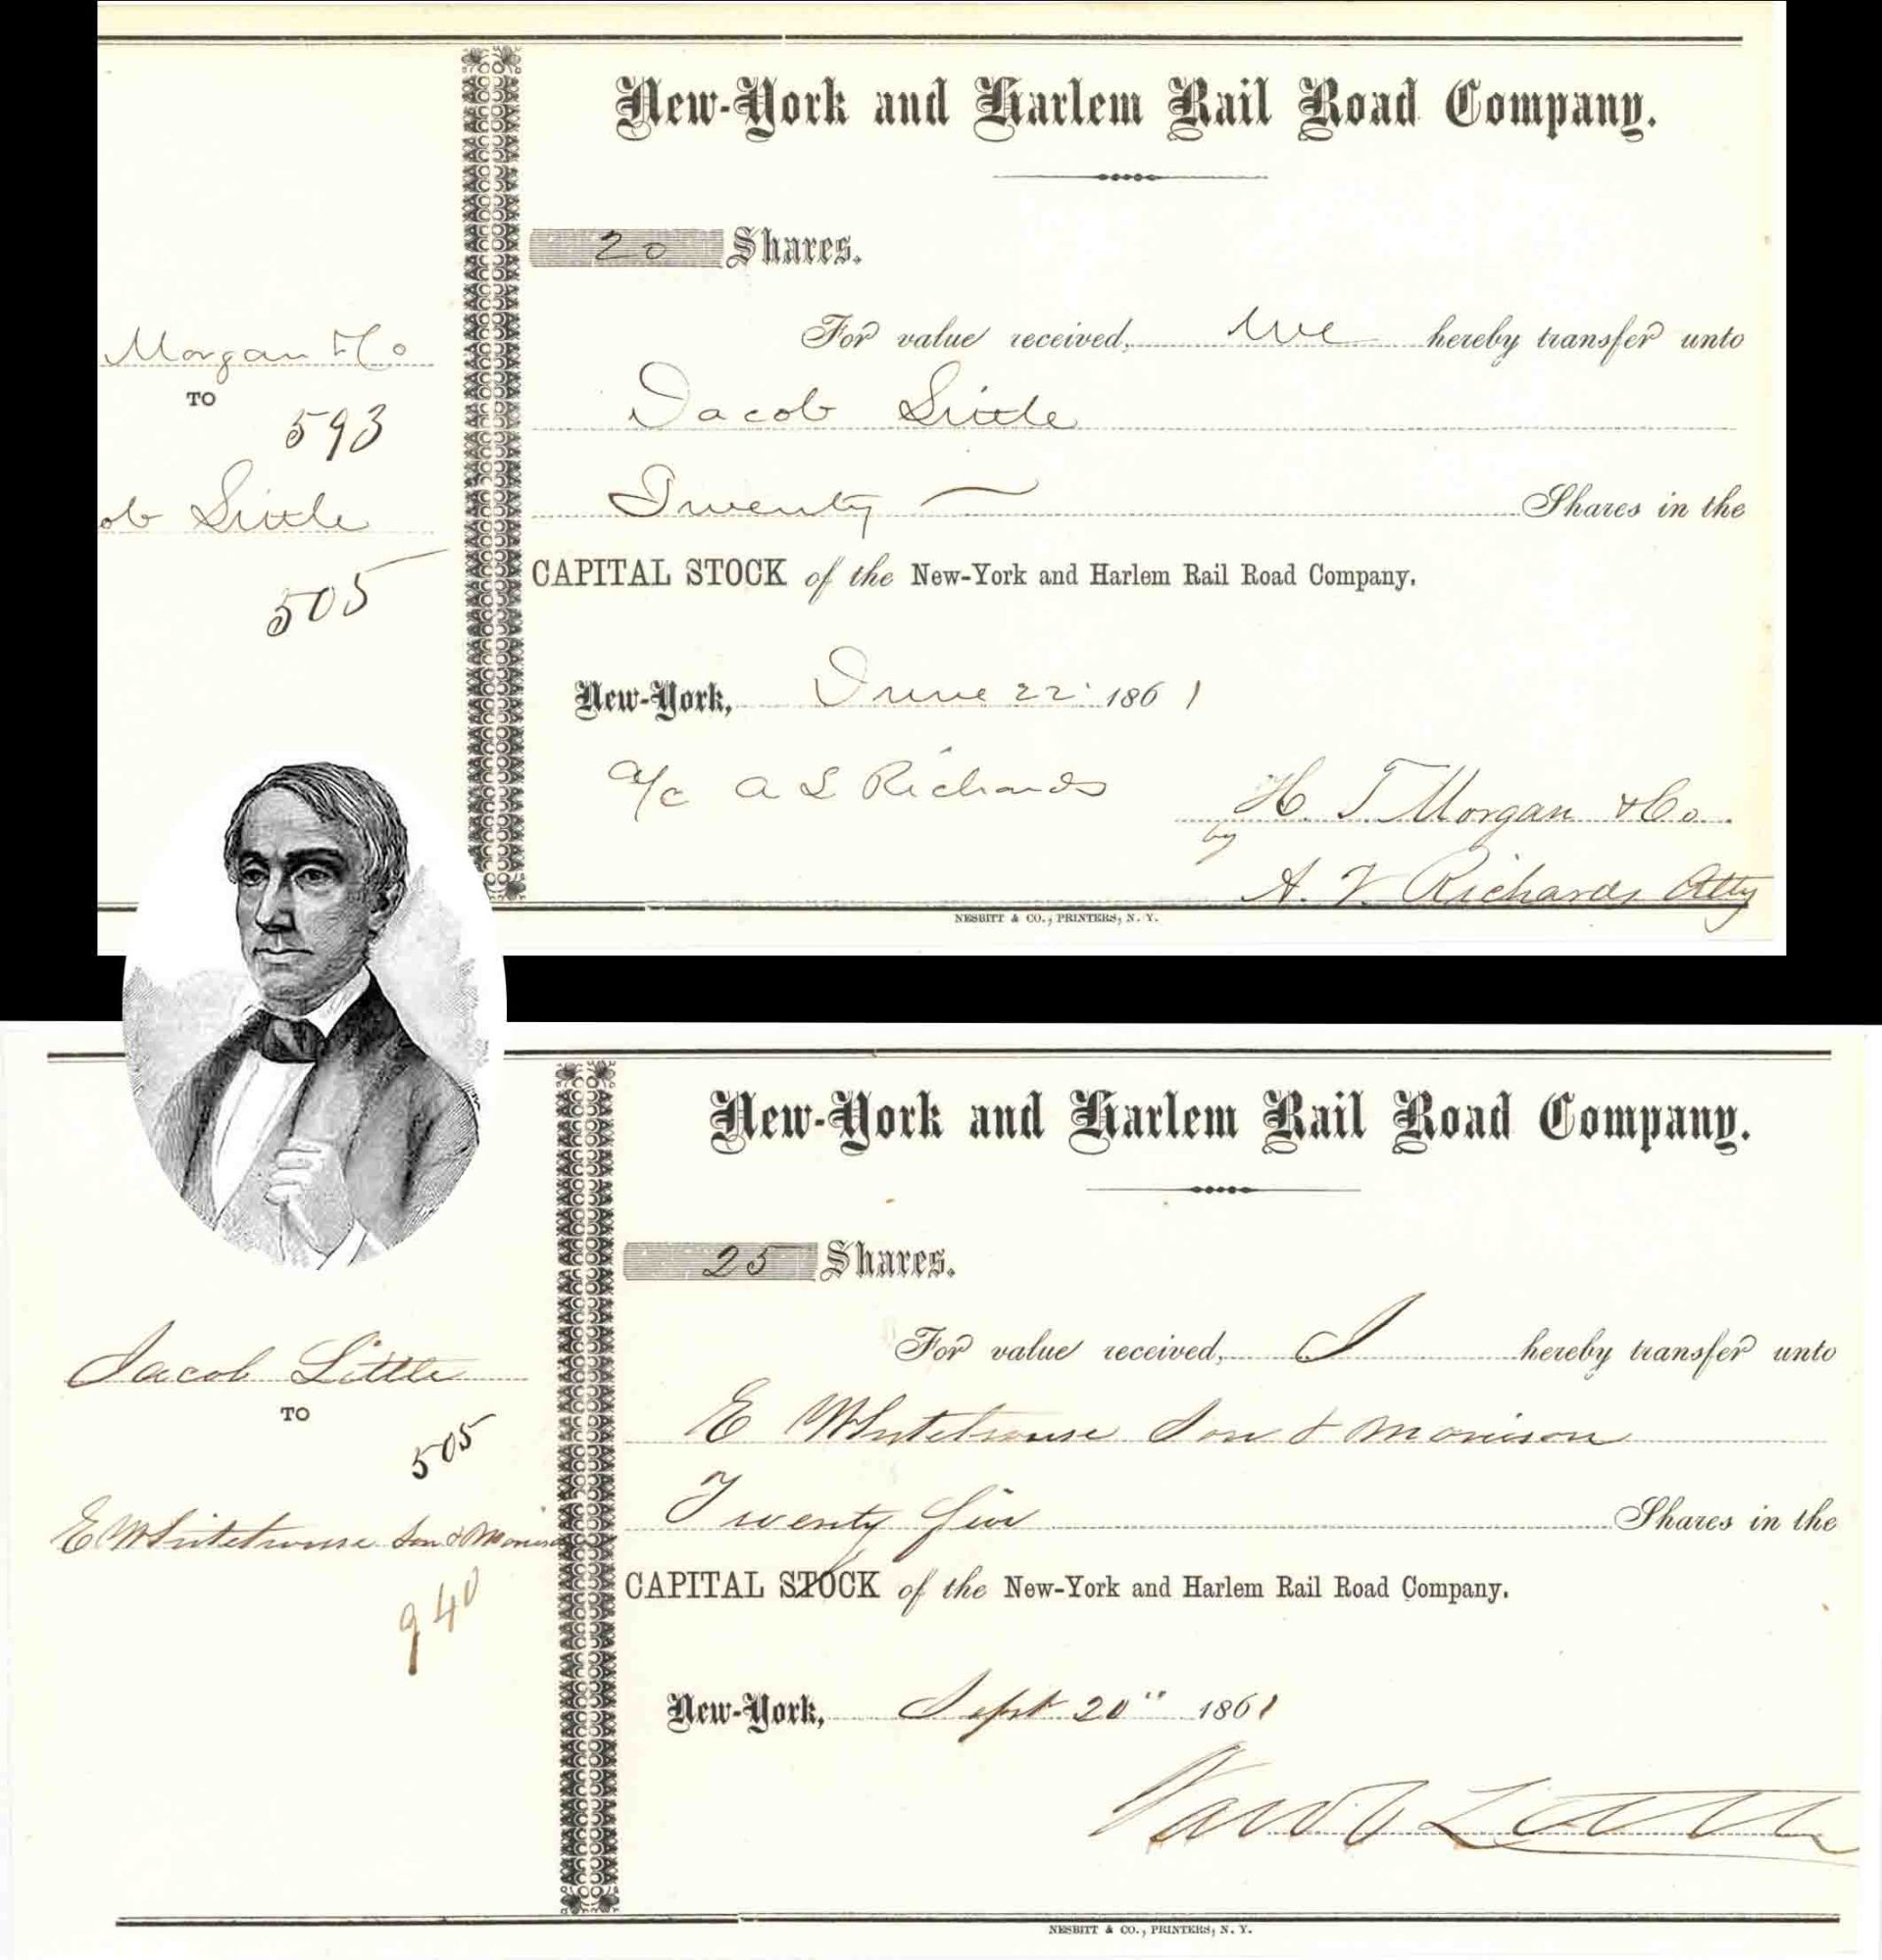 New-York and Harlem Rail Road Company.
20 Shares.
For value received, We hereby transfer unto
Jacob Little
Twenty Shares in the
CAPITAL STOCK of the New-York and Harlem Rail Road Company.
New-York, June 22 1861
a/c A L Richards
H. T. Morgan & Co.
by
A. V. Richards Atty
NESBITT & CO., PRINTERS, N. Y.
Morgan & Co
TO
593
ob Little
505
New-York and Harlem Rail Road Company.
25 Shares.
For value received, I hereby transfer unto
E Whitehouse Son & Morrison
Twenty five Shares in the
CAPITAL STOCK of the New-York and Harlem Rail Road Company.
New-York, Sept 20" 1861
Jacob Little
NESBITT & CO., PRINTERS, N. Y.
Jacob Little
TO
505
E Whitehouse Son & Morrison
940